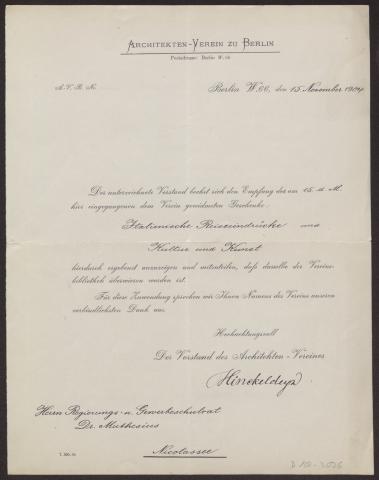 Architekten-Verein zu Berlin
Postadresse: Berlin W. 66
A. V. B. N.
Berlin W. 66, den 15. November 1904
Der unterzeichnete Vorstand beehrt sich den Empfang des am 15. d. M.
hier eingegangenen dem Verein gewidmeten Geschenks:
Italienische Reiseeindrücke und
Kultur und Kunst
hierdurch ergebenst anzuzeigen und mitzuteilen, daß dasselbe der Vereins-
bibliothek überwiesen worden ist.
Für diese Zuwendung sprechen wir Ihnen Namens des Vereins unseren
verbindlichsten Dank aus.
Hochachtungsvoll
Der Vorstand des Architekten-Vereines
Hinckeldeyn
Herrn Regierungs- u. Gewerbeschulrat
Dr. Muthesius
Nicolassee